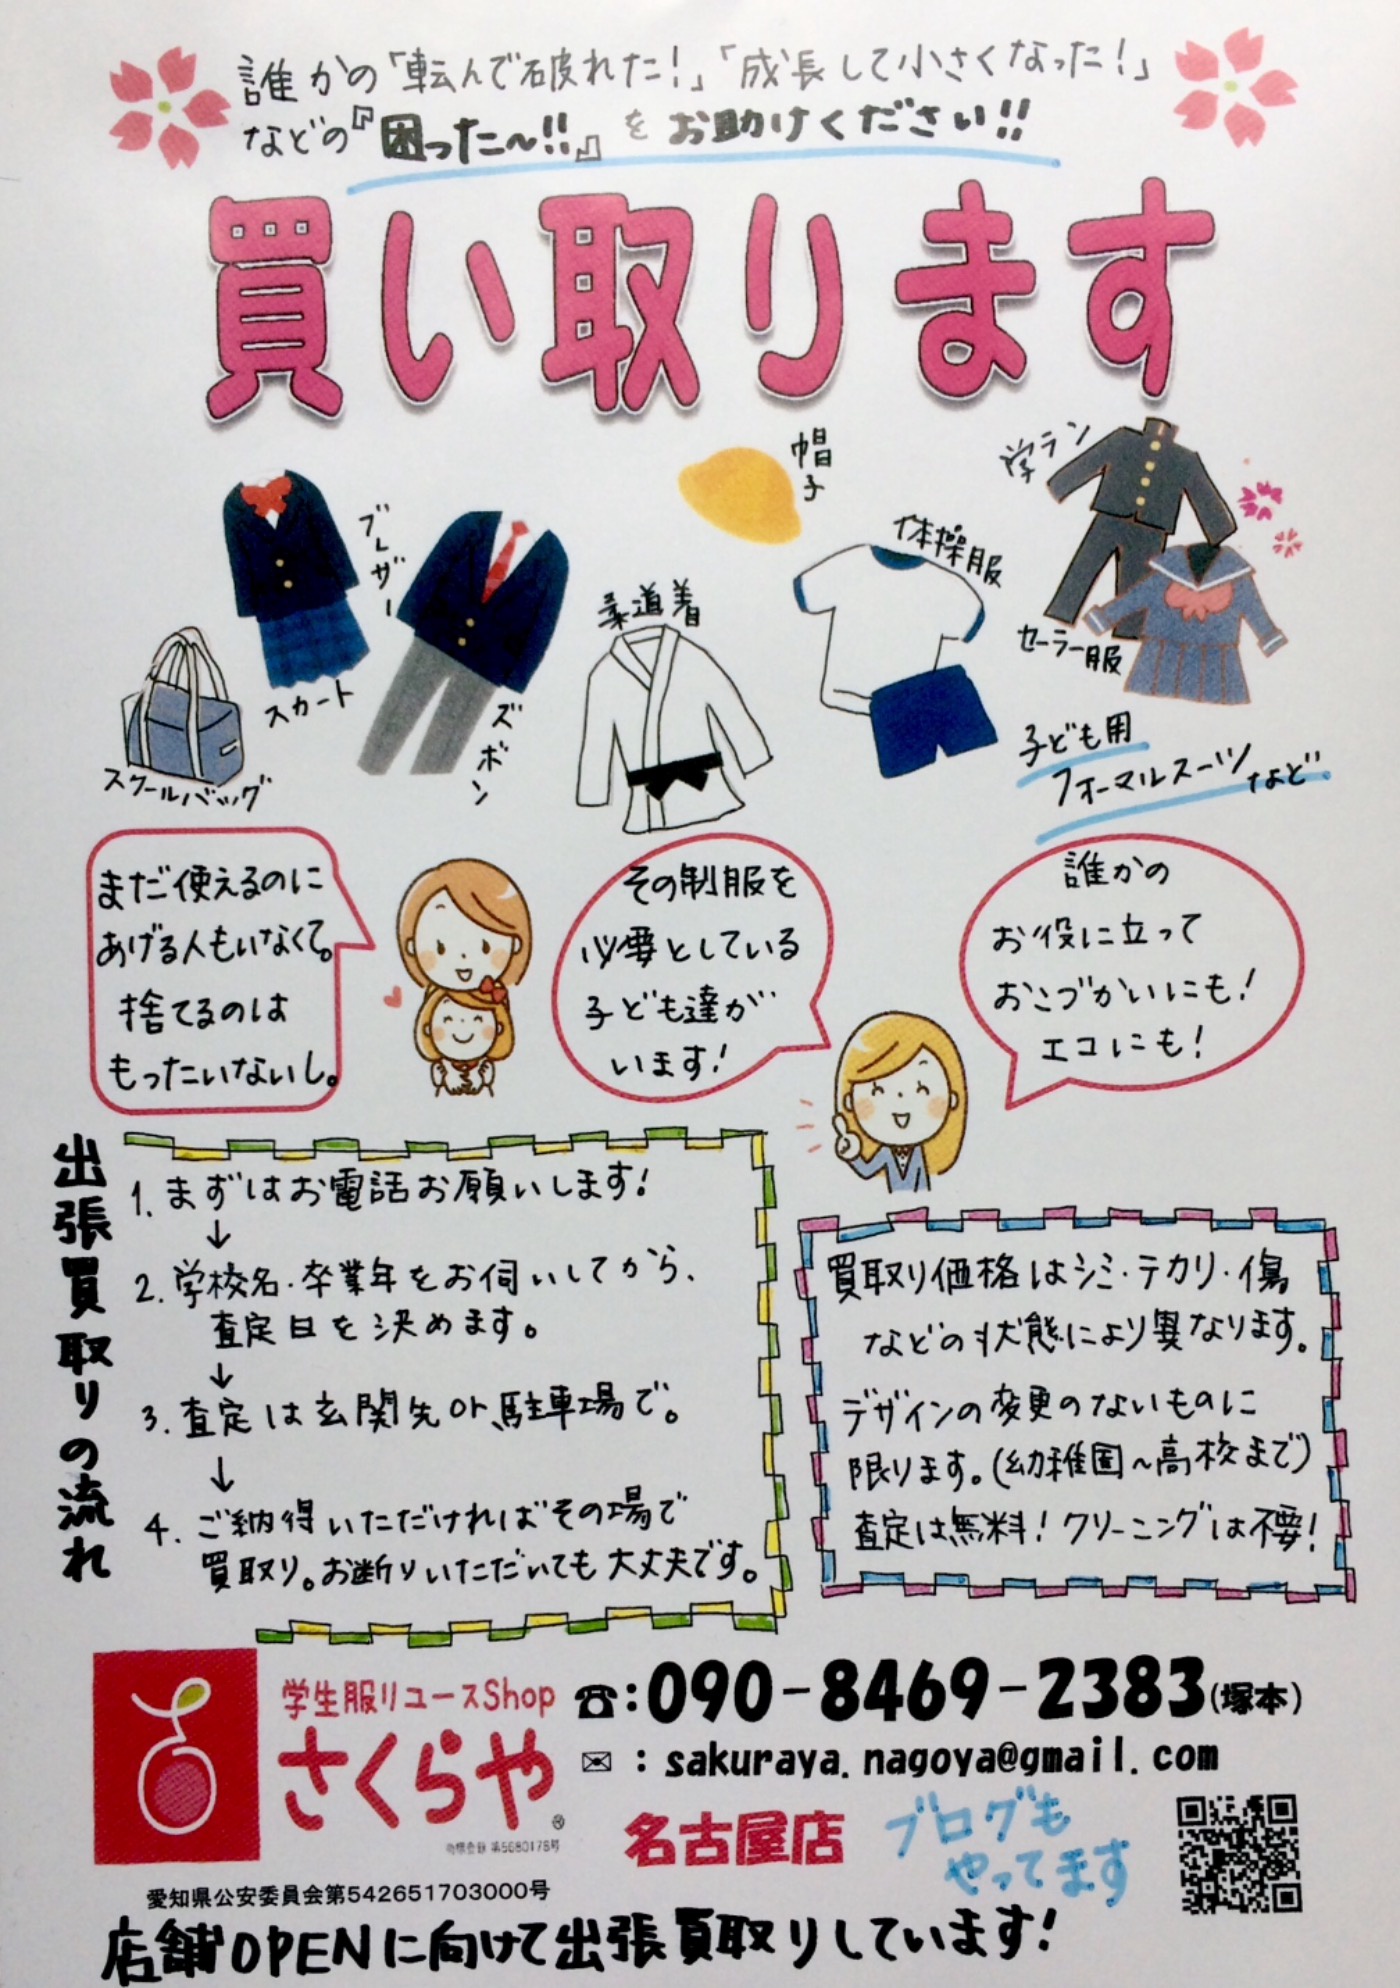 誰かの「転んで破れた!」「成長して小さくなった!」
などの『困った〜!!』をお助けください!!
買い取ります
帽子
学ラン
ブレザー
体操服
柔道着
セーラー服
スカート
ズボン
スクールバッグ
子ども用
フォーマルスーツなど
まだ使えるのに
あげる人もいなくて。
捨てるのは
もったいないし。
その制服を
必要としている
子ども達が
います!
誰かの
お役に立って
おこづかいにも!
エコにも!
出張買取りの流れ
1. まずはお電話お願いします!
↓
2. 学校名・卒業年をお伺いしてから、
査定日を決めます。
↓
3. 査定は玄関先or駐車場で。
↓
4. ご納得いただければその場で
買取り。お断りいただいても大丈夫です。
買取り価格はシミ・テカリ・傷
などの状態により異なります。
デザインの変更のないものに
限ります。(幼稚園~高校まで)
査定は無料! クリーニングは不要!
学生服リユースShop
さくらや®
商標登録 第5680178号
☎:090-8469-2383(塚本)
✉:sakuraya.nagoya@gmail.com
名古屋店
ブログも
やってます
愛知県公安委員会第542651703000号
店舗OPENに向けて出張買取りしています!